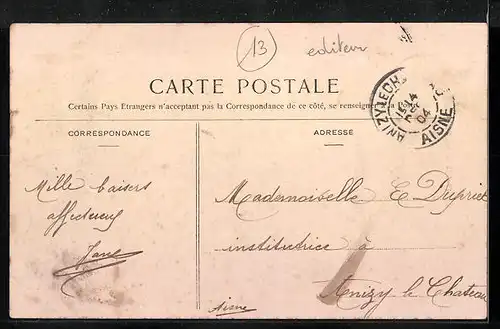 13 editeur
CARTE POSTALE
Certains Pays Etrangers n'acceptent pas la Correspondance de ce côté, se renseigner à la
CORRESPONDANCE
ADRESSE
ANIZY-LE-CH
04
AISNE
Mille baisers
affectueux
Mademoiselle E Dupriet
institutrice à
Anizy le Chateau
Aisne